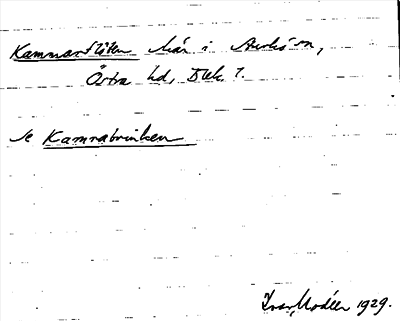 Kammarslåten här i Avliö sn,
Östra hd, Blek. 7.
se Kamrabrinken
Ivar Modéer 1929.